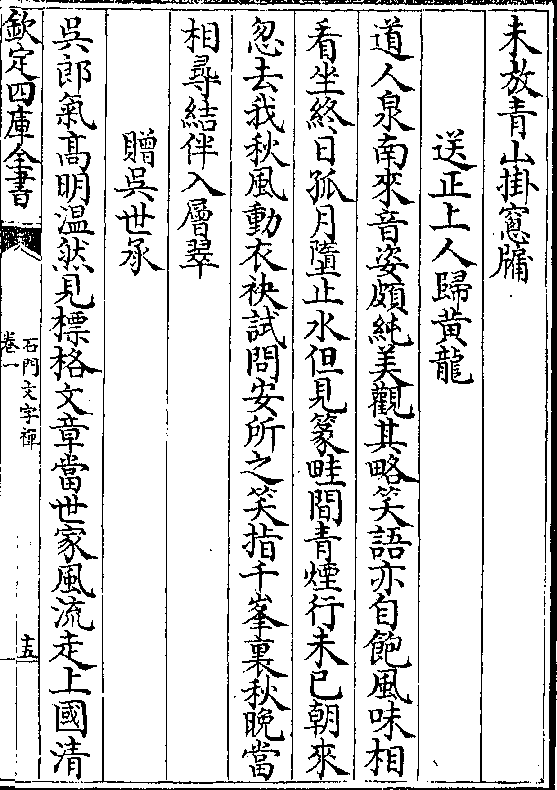 未放青山掛窻牖
送正上人歸黃龍
道人泉南來音姿頗純美觀其略笑語亦自飽風味相
看坐終日孤月墮止水但見篆畦間青煙行未已朝來
忽去我秋風動衣袂試問安所之笑指千峯裏秋晚當
相尋結伴入層翠
贈吳世承
吳郎氣高明温然見標格文章當世家風流走上國清
欽定四庫全書
石門文字禪
卷一
十五